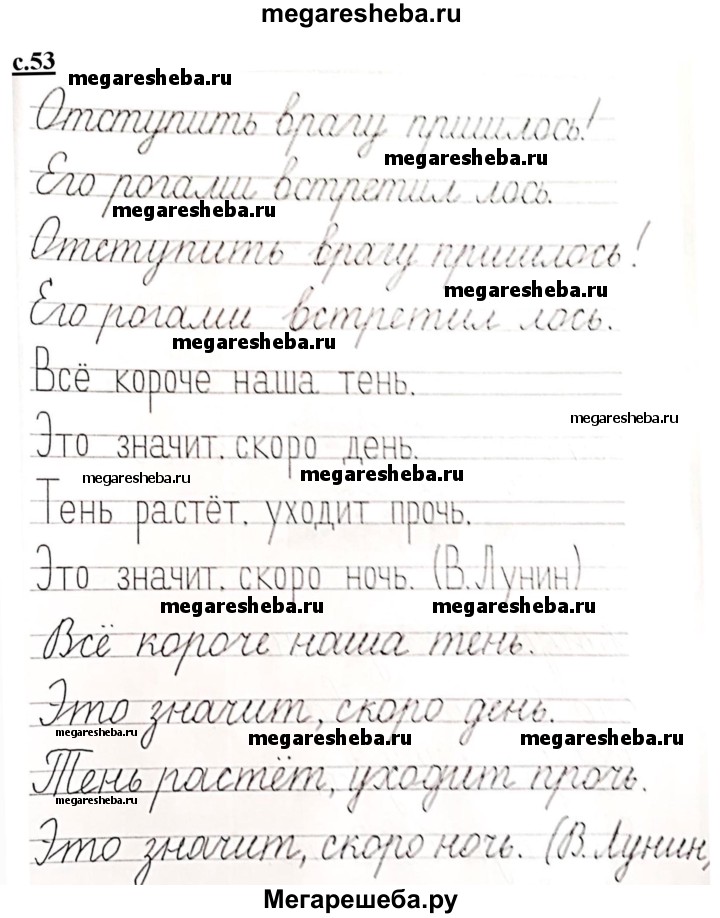 megaresheba.ru
с.53
megaresheba.ru
Отступить врагу пришлось!
megaresheba.ru
Его рогами встретил лось.
megaresheba.ru
Отступить врагу пришлось!
megaresheba.ru
Его рогами встретил лось.
megaresheba.ru
Всё короче наша тень.
megaresheba.ru
Это значит, скоро день.
megaresheba.ru megaresheba.ru
Тень растёт, уходит прочь.
Это значит, скоро ночь. (В.Лунин)
megaresheba.ru megaresheba.ru
Всё короче наша тень.
Это значит, скоро день.
megaresheba.ru megaresheba.ru megaresheba.ru
Тень растёт, уходит прочь.
megaresheba.ru
Это значит, скоро ночь. (В.Лунин)
Мегарешеба.ру